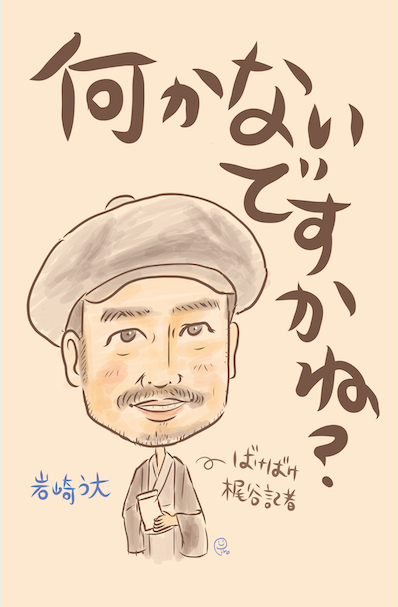 何かない
ですかね?
ばけばけ
梶谷記者
岩崎う大